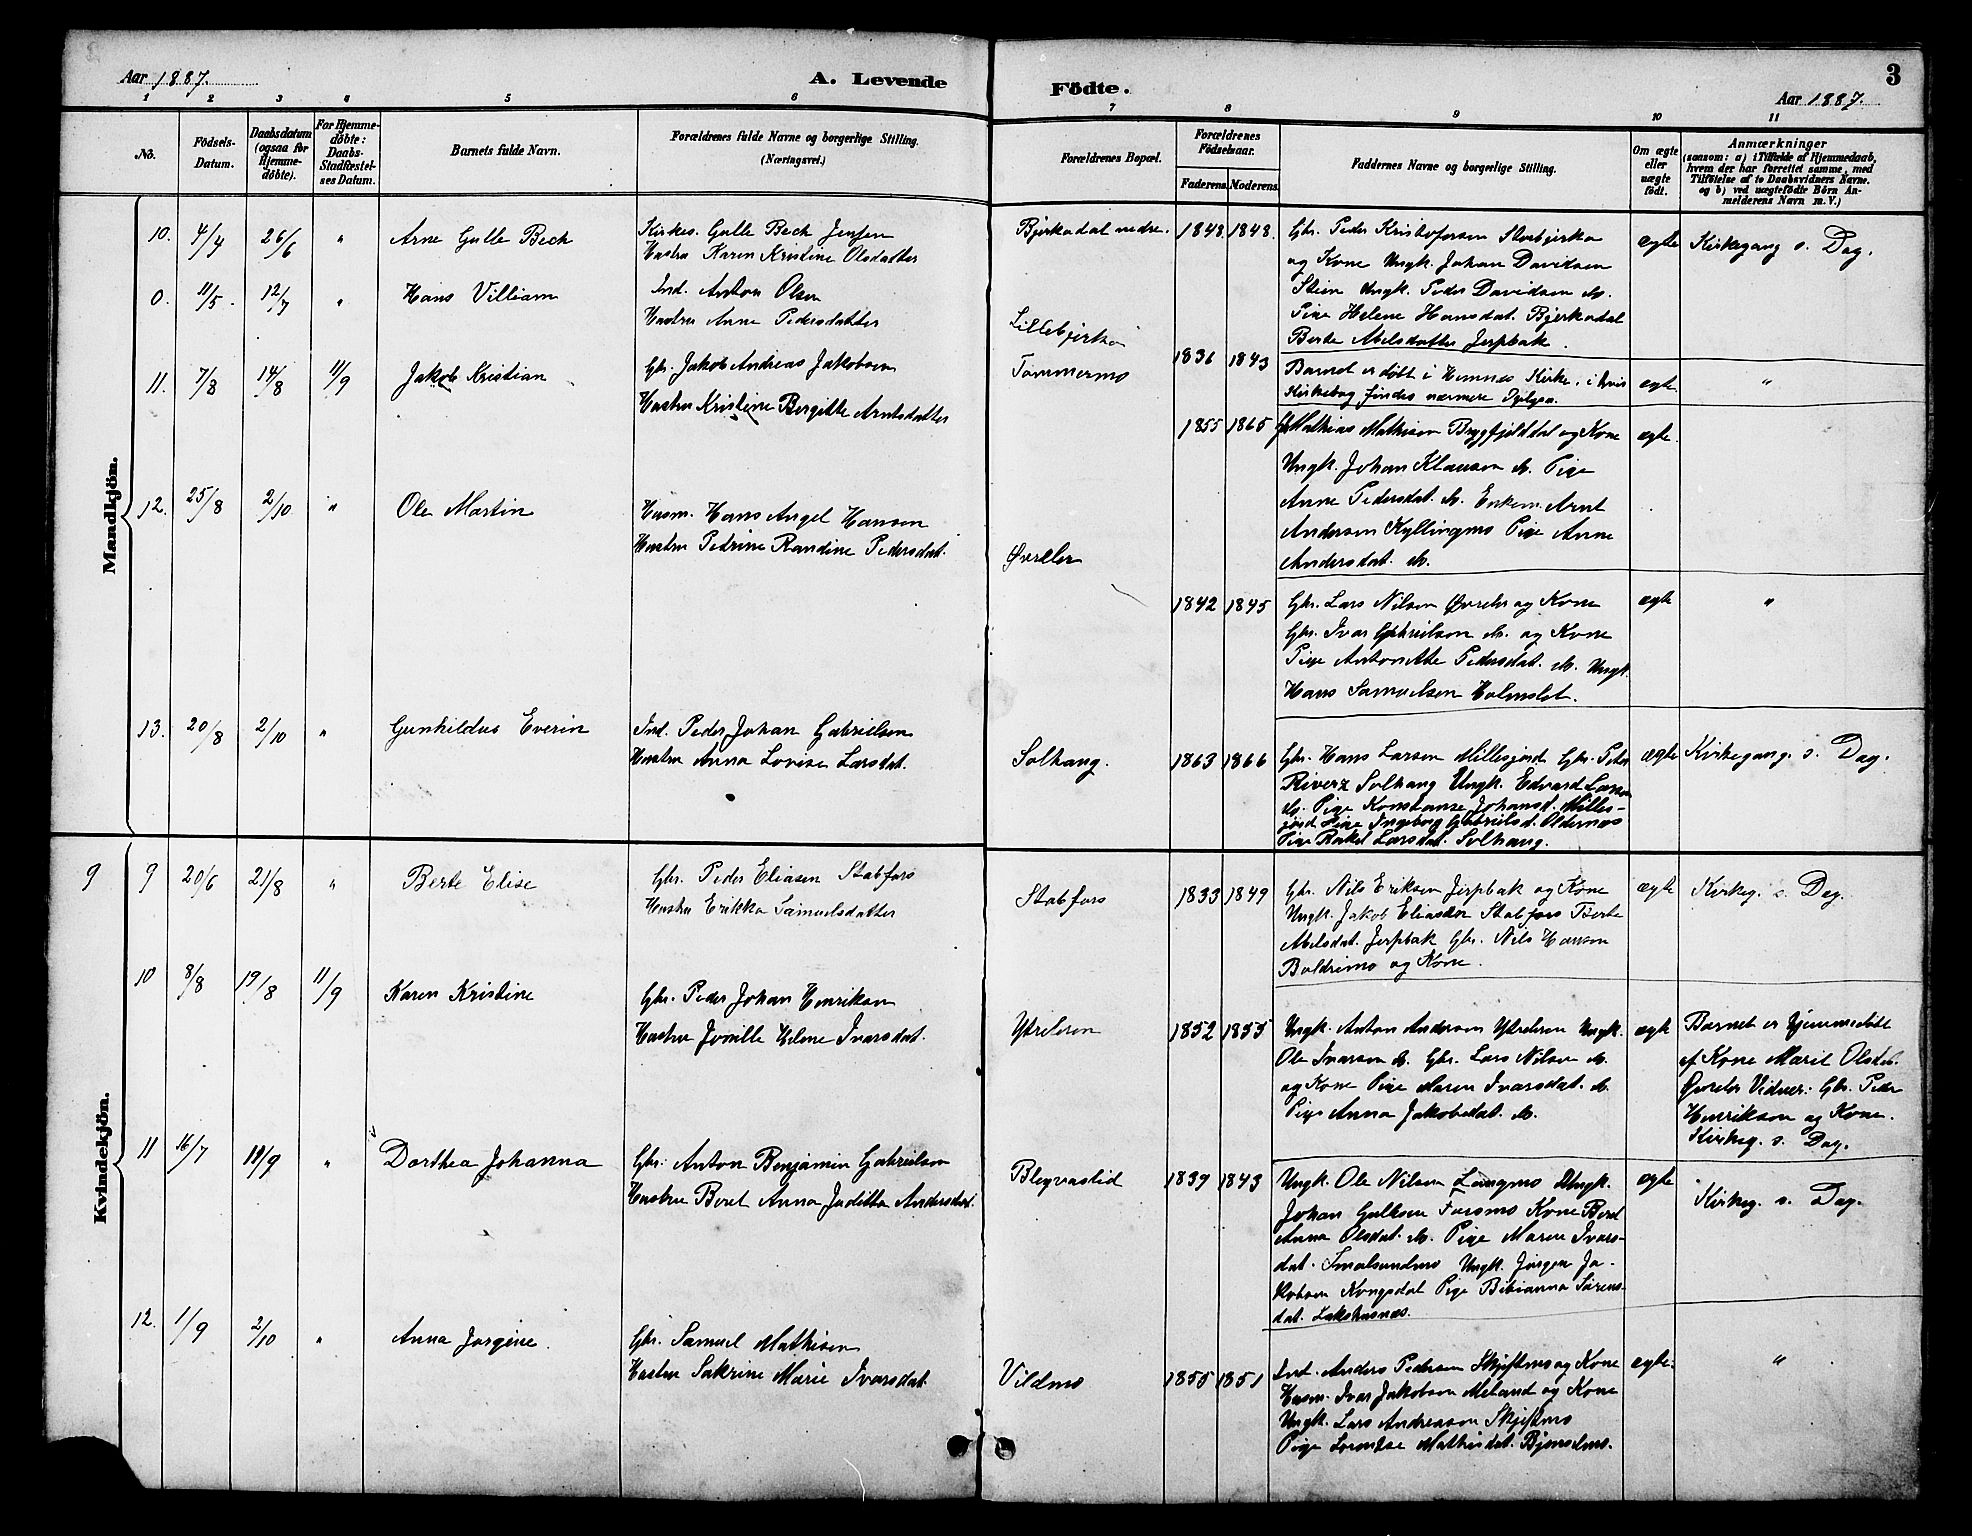 Aar 1887.
A. Levende
Födte.
3
Aar 1887.
1 2 3 4 5 6 7 8 9 10 11
No.
Födsels-
Datum.
Daabsdatum
(ogsaa for
Hjemme-
döbte).
For Hjemme-
döbte:
Daabs-
Stadfæstel-
ses Datum.
Barnets fulde Navn.
Forældrenes fulde Navne og borgerlige Stilling.
(Næringsvei.)
Forældrenes Bopæl.
Forældrenes
Födselsaar.
Faderens. Moderens.
Faddernes Navne og borgerlige Stilling.
Om ægte
eller
uægte
födt.
Anmærkninger
(saasom: a) i Tilfælde af Hjemmedaab,
hvem der har forrettet samme, med
Tilföielse af to Daabsvidners Navne.
og b) ved uægtefödte Börn An-
melderens Navn m. V.)
Mandkjön.
10. 4/4 26/6 " Arne Gulle Bech
Kirkes. Gulle Bech Jensen
Hustru Karen Kristine Olsdatter
Bjerkadal nedre. 1848. 1848.
Gbr. Peder Kristofersen Storbjerka
og Kone Ungk. Johan Davidsen
Stien Ungk. Peder Davidsen ds.
Pige Helene Hansdat. Bjerkadal
Berte Abelsdatter Jerpbak.
ægte Kirkegang s. Dag.
0. 11/5. 12/7 " Hans Villiam
Ind. Anton Olsen
Hustru Anne Pedersdatter
Lillebjerka
11. 7/8 14/8 11/9 Jakob Kristian
Gbr. Jakob Andreas Jakobsen
Hustru Kristine Bergitte Arntsdatter
Tommermo 1836 1843
Barnet er döbt i Hemnes Kirke, i hvis
Kirkebog findes nærmere Oplysn.
ægte "
1855 1865 Gbr Mathias Mathisen Brygfjelddal og Kone
Ungk. Johan Klausen ds. Pige
Anne Pedersdat. ds. Enkem. Arnt
Andersen Kyllingmo Pige Anne
Andersdat. ds.
ægte.
12. 25/8 2/10 " Ole Martin
Husm. Hans Angel Hansen
Hustru Petrine Randine Pedersdat.
Øverleir
1842 1845 Gbr. Lars Nilsen Øverleir og Kone
Gbr. Ivar Gabrielsen ds. og Kone
Pige Antonette Pedersdat. ds. Ungk.
Hans Samuelsen Holmslet.
ægte "
13. 20/8 2/10 " Gunhildus Everin
Ind. Peder Johan Gabrielsen
Hustru Anna Lovise Larsdat.
Solhaug. 1863 1866
Gbr. Hans Larsen Millesjord Gbr. Peter
Riverz Solhaug Ungk. Edvard Larsen
ds. Pige Konstanse Johansd. Milles-
jord Pige Ingeborg Gabrielsd. Oldernæs
Pige Rakel Larsdat. Solhaug.
ægte Kirkegang. s. Dag.
Kvindekjön.
9 9 20/6 21/8 " Berte Elise
Gbr. Peder Eliasen Stabfors
Hustru Erikka Samuelsdatter
Stabfors 1833 1849
Gbr. Nils Eriksen Jerpbak og Kone
Ungk. Jakob Eliassen Stabfors Berte
Abelsdat. Jerpbak Gbr. Nils Hansen
Baldrimo og Kone.
ægte Kirkeg. s. Dag.
10 8/8 19/8 11/9 Karen Kristine
Gbr. Peder Johan Henriksen
Hustru Jonille Helene Ivarsdat.
Ytreleren 1852 1855
Ungk. Anton Andersen Ytreleren Ungk.
Ole Ivarsen ds. Gbr. Lars Nilsen ds.
og Kone Pige Maren Ivarsdat. ds.
Pige Anna Jakobsdat. ds.
ægte Barnet er hjemmedöbt
af Kone Marit Olsdat.
Øvreler Vidner: Gbr. Peder
Henriksen og Kone.
Kirkeg. s. Dag.
11 16/7 19/9 " Dorthea Johanna
Gbr. Anton Benjamin Gabrielsen
Hustru Beret Anna Juditta Andersdat.
Bleqvaslid 1839 1843
Ungk. Ole Nilsen Langmo Ungk.
Johan Gullesen Forsmo Kone Beret
Anna Olsdat. ds. Pige Maren Ivars-
dat. Smalsundmo Ungk. Jörgen Ja-
kobsen Kongsdal Pige Bibianna Sörens-
dat. Lakshusnæs.
ægte Kirkeg. s. Dag.
12. 1/9 2/10 " Anna Jorgine.
Gbr. Samuel Mathisen
Hustru Sakrine Marie Ivarsdat.
Vildmo 1855 1851
Ind. Anders Pedersen Skjeftmo og Kone
Husm. Ivar Jakobsen Meland og Kone
Ungk. Lars Andreasen Skjeftmo
Pige Lorentse Mathisdat. Bjensdmo.
ægte. "